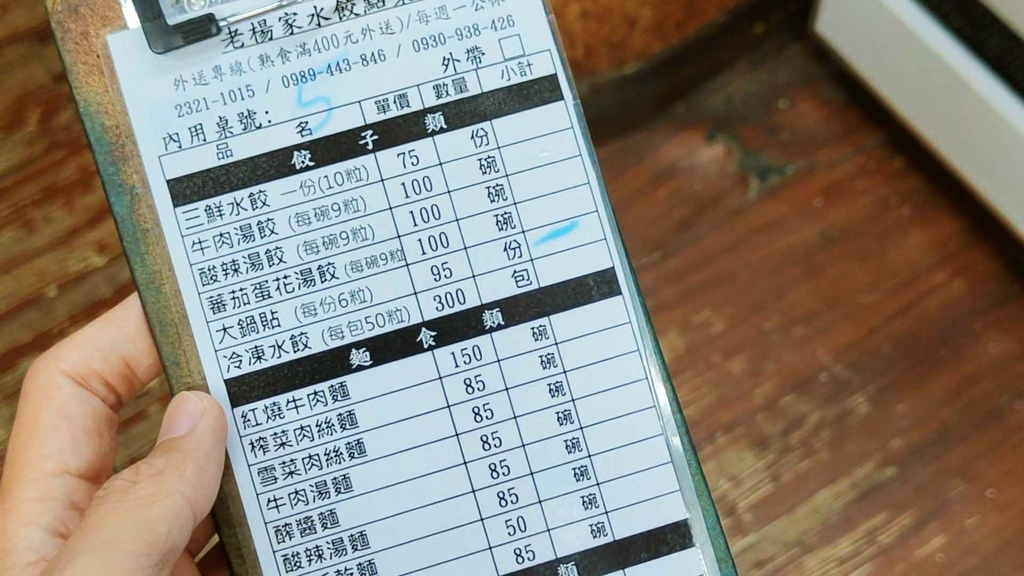 老楊家水餃點
外送專線(熟食滿400元外送)/每週一公休
2321-1015 / 0989-443-846 / 0930-938-426
內用桌號： 5 外帶 □
品 名 單價 數量 小計
餃 子 類
三鮮水餃 一份(10粒) 75 份
牛肉湯餃 (每碗9粒) 100 碗
酸辣湯餃 (每碗9粒) 100 碗
蕃茄蛋花湯餃 (每碗9粒 100 碗
大鍋貼 (每份6粒) 95 份
冷凍水餃 (每包50粒) 300 包
麵 食 類
紅燒牛肉麵 150 碗
榨菜肉絲麵 85 碗
雪菜肉絲麵 85 碗
牛肉湯麵 85 碗
醡醬麵 85 碗
酸辣湯麵 85 碗
乾麵 50 碗
85 碗
類